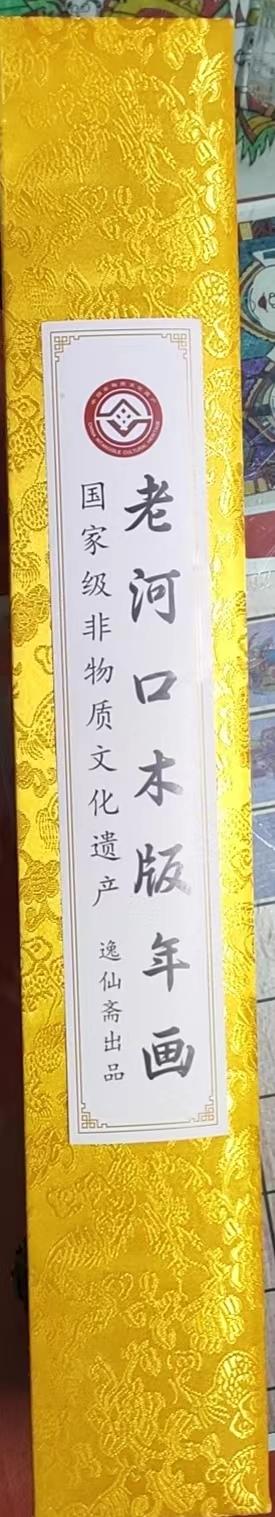 老河口木版年画
国家级非物质文化遗产 逸仙斋出品
CHINA INTANGIBLE CULTURAL HERITAGE